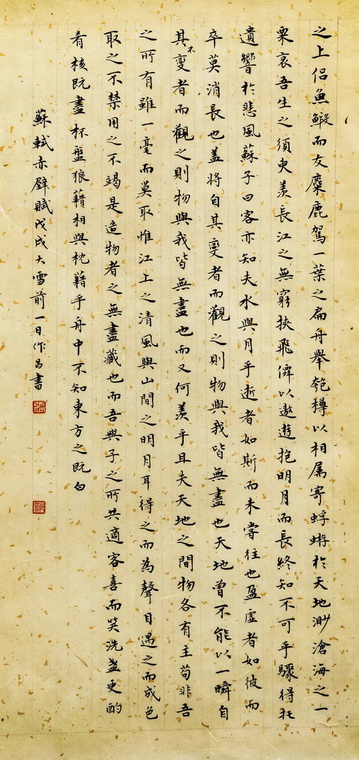 之上侣魚鰕而友麋鹿駕一葉之扁舟舉匏樽以相属寄蜉蝣於天地渺滄海之一
粟哀吾生之須臾羨長江之無窮挾飛僊以遨遊抱明月而長終知不可乎驟得托
遺響於悲風蘇子曰客亦知夫水與月乎逝者如斯而未嘗往也盈虛者如彼而
卒莫消長也蓋將自其變者而觀之則物與我皆無盡也天地曾不能以一瞬自
其不變者而觀之則物與我皆無盡也而又何羨乎且夫天地之間物各有主苟非吾
之所有雖一毫而莫取惟江上之清風與山間之明月耳得之而為聲目遇之而成色
取之不禁用之不竭是造物者之無盡藏也而吾與子之所共適客喜而笑洗盞更酌
肴核既盡杯盤狼藉相與枕藉乎舟中不知東方之既白
蘇軾赤壁賦戊戌大雪前一日作昌書